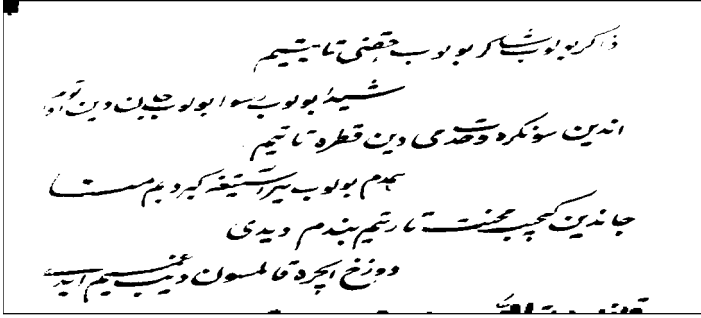 ذاکر بولوب شاکر بولوب حقنی تاپتیم
شیدا بولوب رسوا بولوب جاندین اوتتوم
اندین سونکره وحدتدی دین قطره تاتیم
همدم بولوب یر استیغه کیردیم منا
جاندین کیچیب محنت تارتیم بندم دیدی
دوزخ ایچره قالمسون دیب غمیم ییدی